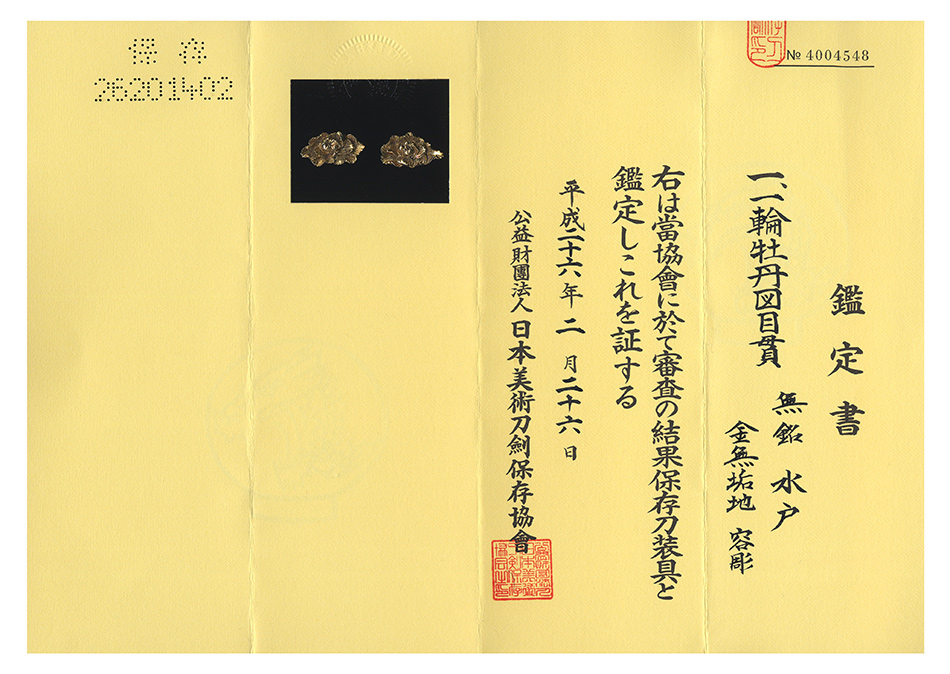 № 4004548
鑑定書
一、一輪牡丹図目貫
無銘 水戸
金無垢地 容彫
右は當協會に於て審査の結果保存刀装具と
鑑定しこれを証する
平成二十六年二月二十六日
公益財團法人日本美術刀劍保存協會
保存
26201402